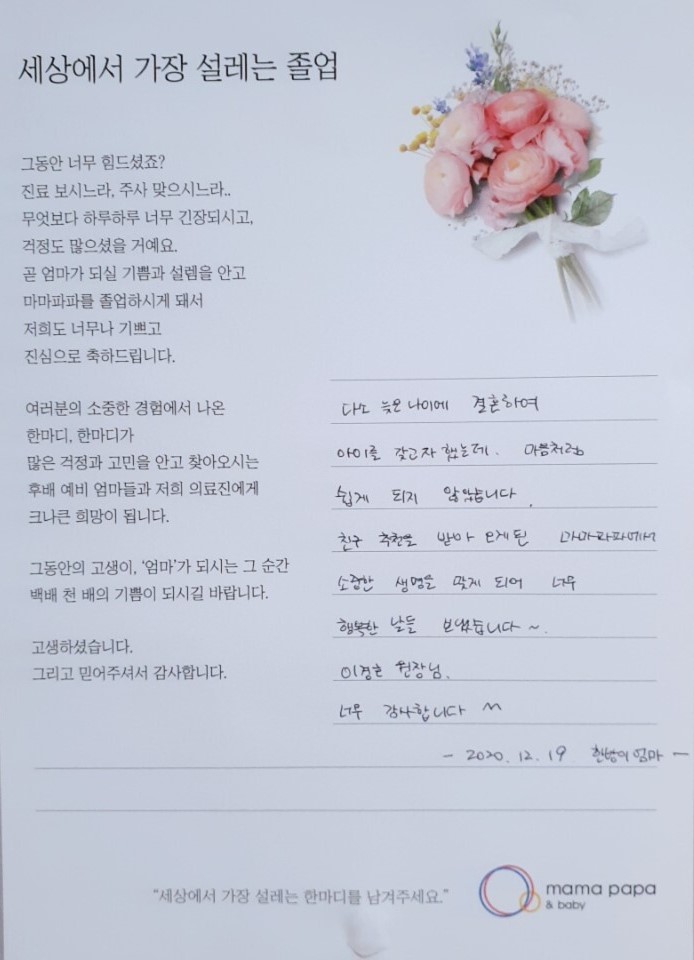 세상에서 가장 설레는 졸업
그동안 너무 힘드셨죠?
진료 보시느라, 주사 맞으시느라..
무엇보다 하루하루 너무 긴장되시고,
걱정도 많으셨을 거예요.
곧 엄마가 되실 기쁨과 설렘을 안고
마마파파를 졸업하시게 돼서
저희도 너무나 기쁘고
진심으로 축하드립니다.
여러분의 소중한 경험에서 나온
한마디, 한마디가
많은 걱정과 고민을 안고 찾아오시는
후배 예비 엄마들과 저희 의료진에게
크나큰 희망이 됩니다.
그동안의 고생이, '엄마'가 되시는 그 순간
백배 천 배의 기쁨이 되시길 바랍니다.
고생하셨습니다.
그리고 믿어주셔서 감사합니다.
다소 늦은 나이에 결혼하여
아이를 갖고자 했는데. 마음처럼
쉽게 되지 않았습니다.
친구 추천을 받아 오게된 마마파파에서
소중한 생명을 맞게 되어 너무
행복한 날들 보냈습니다~.
이경훈 원장님.
너무 감사합니다 ^^
- 2020. 12. 19 한방이 엄마 -
"세상에서 가장 설레는 한마디를 남겨주세요."
mama papa
& baby